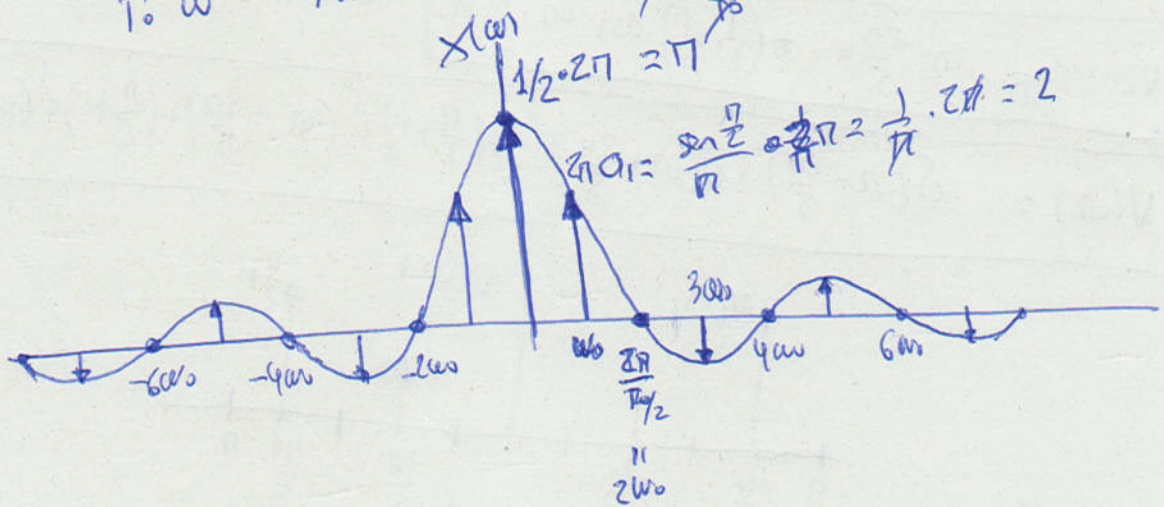 X(ω)
1/2·2π = π
2π a₁ = sen π/2 / π · 2π = 1/π · 2π = 2
3ω₀
-6ω₀ -4ω₀ -2ω₀ ω₀ 2π/T₀/2 4ω₀ 6ω₀
=
2ω₀